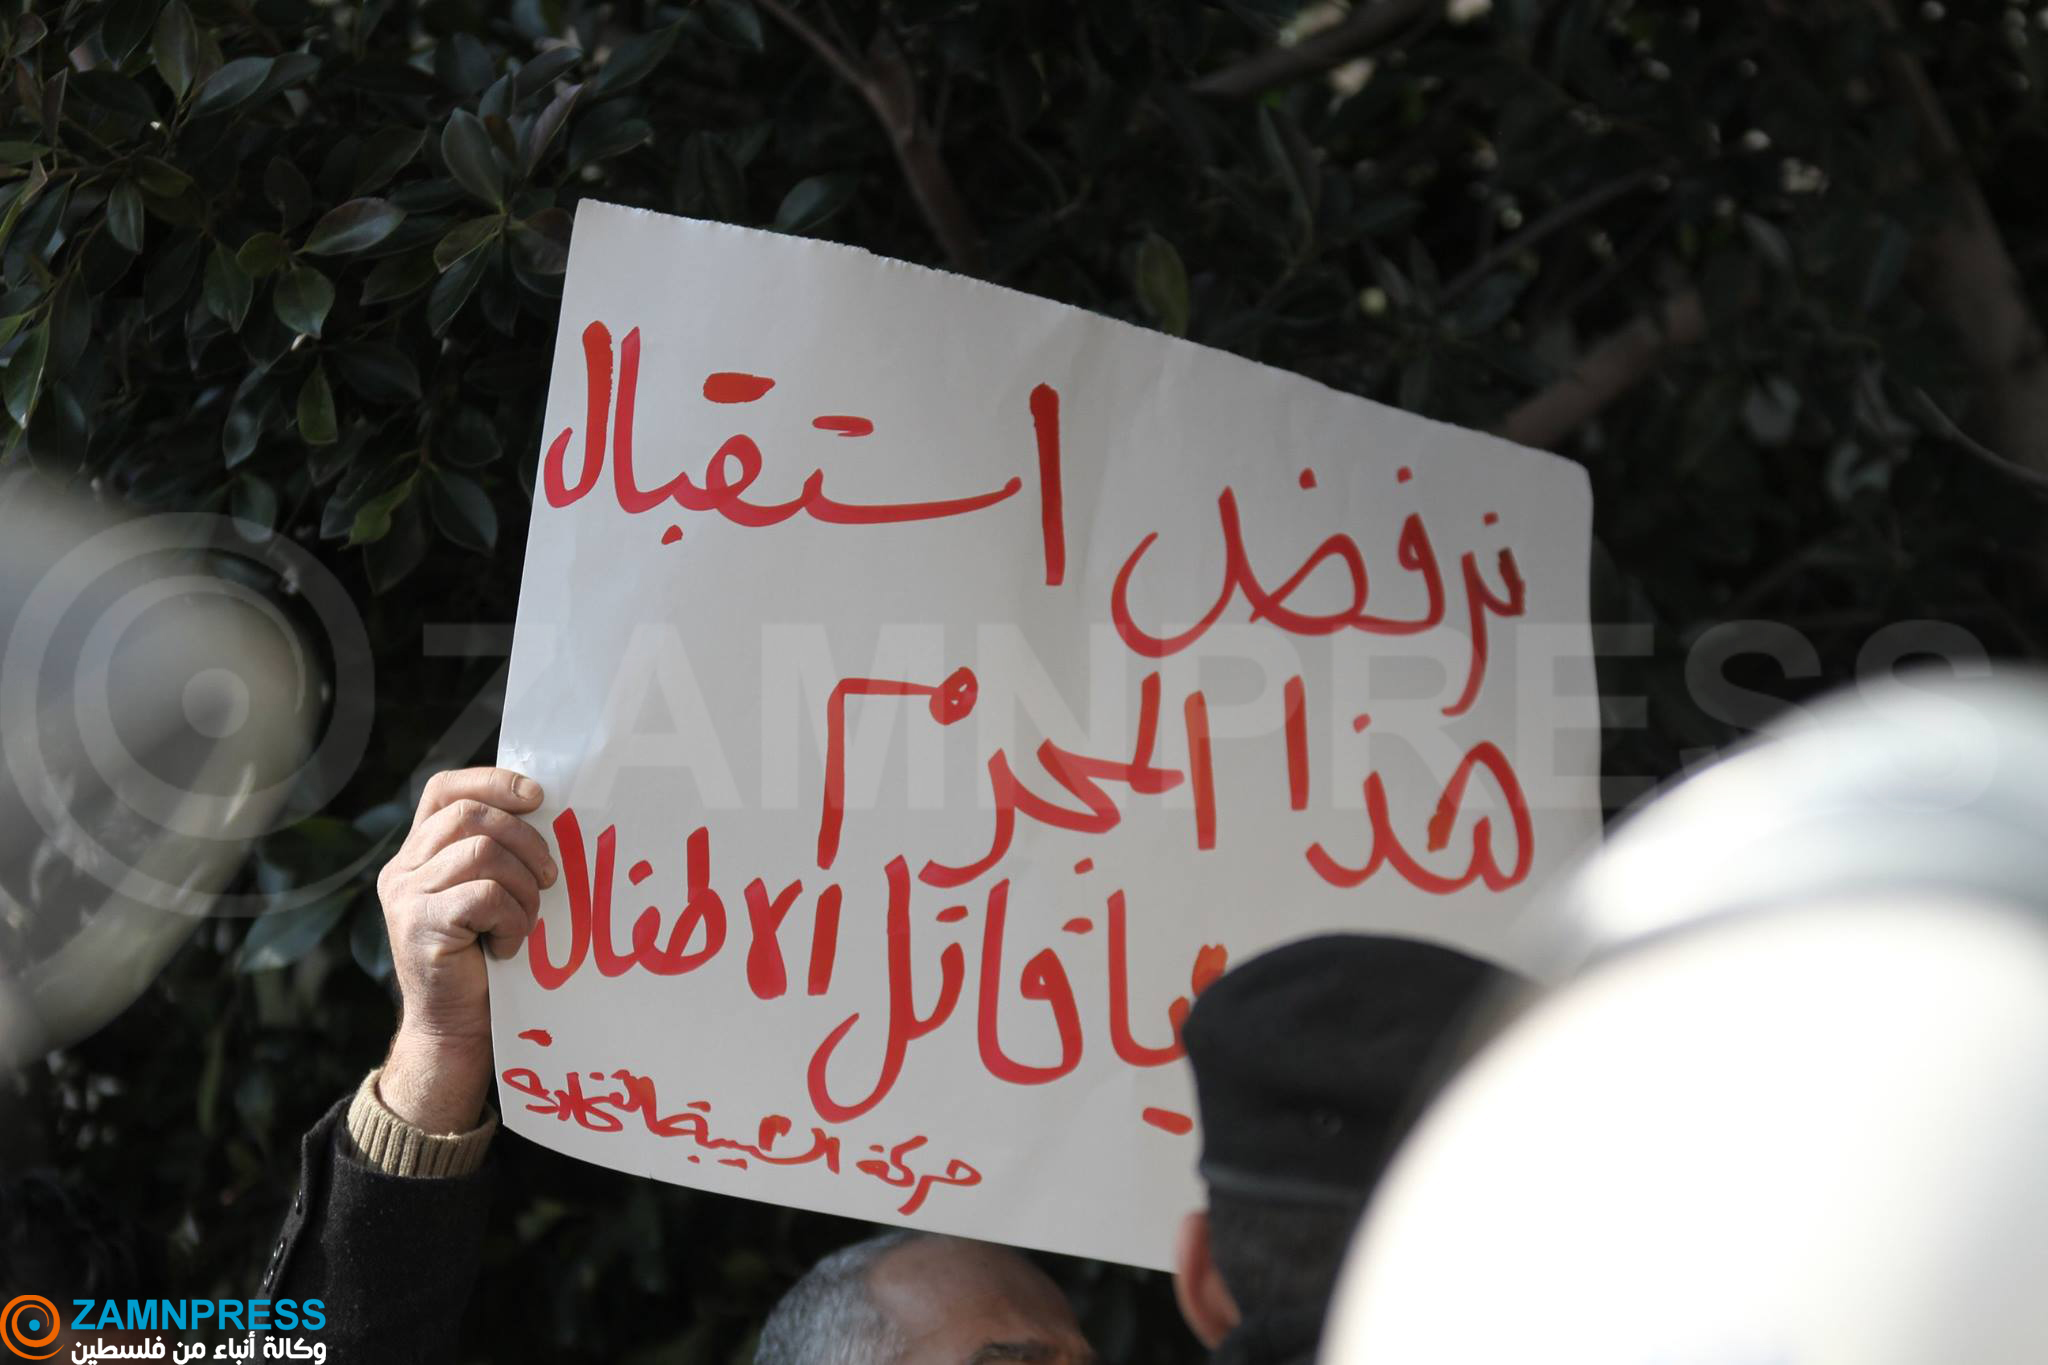 نرفض استقبال
هذا المجرم
يا قاتل الاطفال
حركة الشبيبة الاتحادية
ZAMNPRESS
ZAMNPRESS
وكالة أنباء من فلسطين